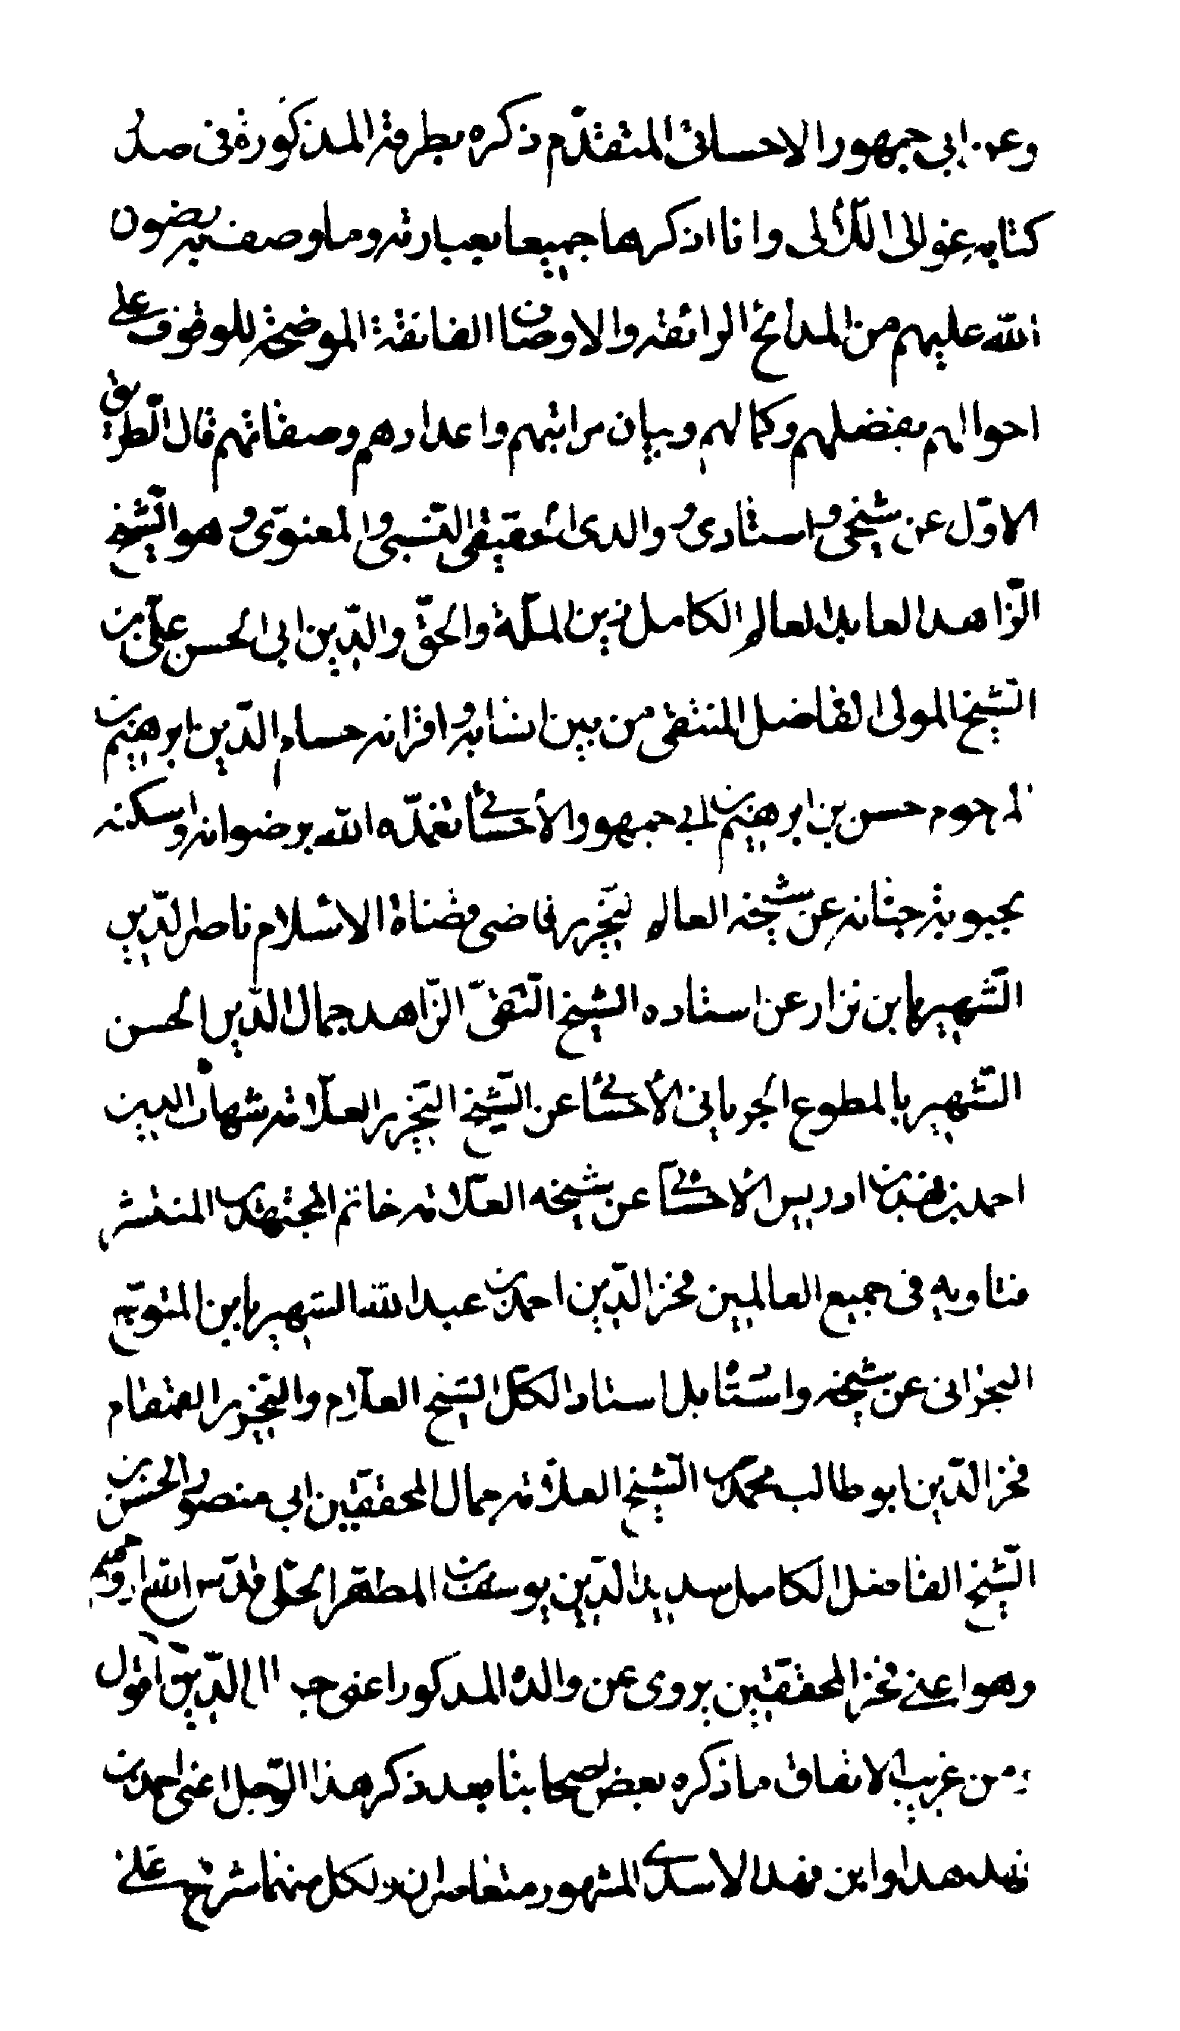 وعن ابي جمهور الاحسائى المتقدّم ذكره بطرقه المذكورة فى صدر
كتابه غوالى اللئالى وانا اذكرها جميعا بعبارته وما وصف به رضوان
الله عليهم من المدائح الرائقه والاوصاف الفائقة الموضحة للوقوف على
احوالهم بفضلهم وكمالهم وبيان مراتبهم واعدادهم وصفاتهم قال الطريق
الاوّل عن شيخى و استادى و والدى الحقيقى النّسبى و المعنوىّ وهو الشّيخ
الزّاهد العابد العالم الكامل زين الملّة والحقّ والدّين ابى الحسن علىّ بن
الشّيخ المولى الفاضل المنتقى من بين انسابه و اقرانه حسام الدّين ابرهيم بن
المرحوم حسن بن ابرهيم بن ابي جمهور الأحسائى تغمّده الله برضوانه واسكنه
بحبوبة جنانه عن شيخه العالم النحرير قاضى قضاة الاسلام ناصر الدّين
الشّهير بابن نزار عن استاده الشّيخ التّقىّ الزّاهد جمال الدّين الحسن
الشّهير بالمطوع الجروانى الأحسائى عن الشّيخ النّحرير العلّامة شهاب الدين
احمد بن فهد بن ادريس الأحسائى عن شيخه العلّامة خاتم المجتهدين المنتشر
فتاويه فى جميع العالمين فخر الدّين احمد بن عبد الله الشهير بابن المتوّج
البحرانى عن شيخه واستاده بل استاد الكلّ الشّيخ العلّام والنّحرير القمقام
فخر الدّين ابو طالب محمد بن الشّيخ العلّامة جمال المحققين ابى منصور الحسن بن
الشّيخ الفاضل الكامل سديد الدّين يوسف بن المطهّر الحلّى قدّس الله ارواحهم
وهو اعنى فخر المحققين يروى عن والده المذكور اعنى جمال الدّين اقول
ومن غريب الاتفاق ما ذكره بعض اصحابنا بعد ذكر هذا الرّجل اعنى احمد بن
فهد هذا وابن فهد الاسدى المشهور متعاصران ولكل منهما شرح على